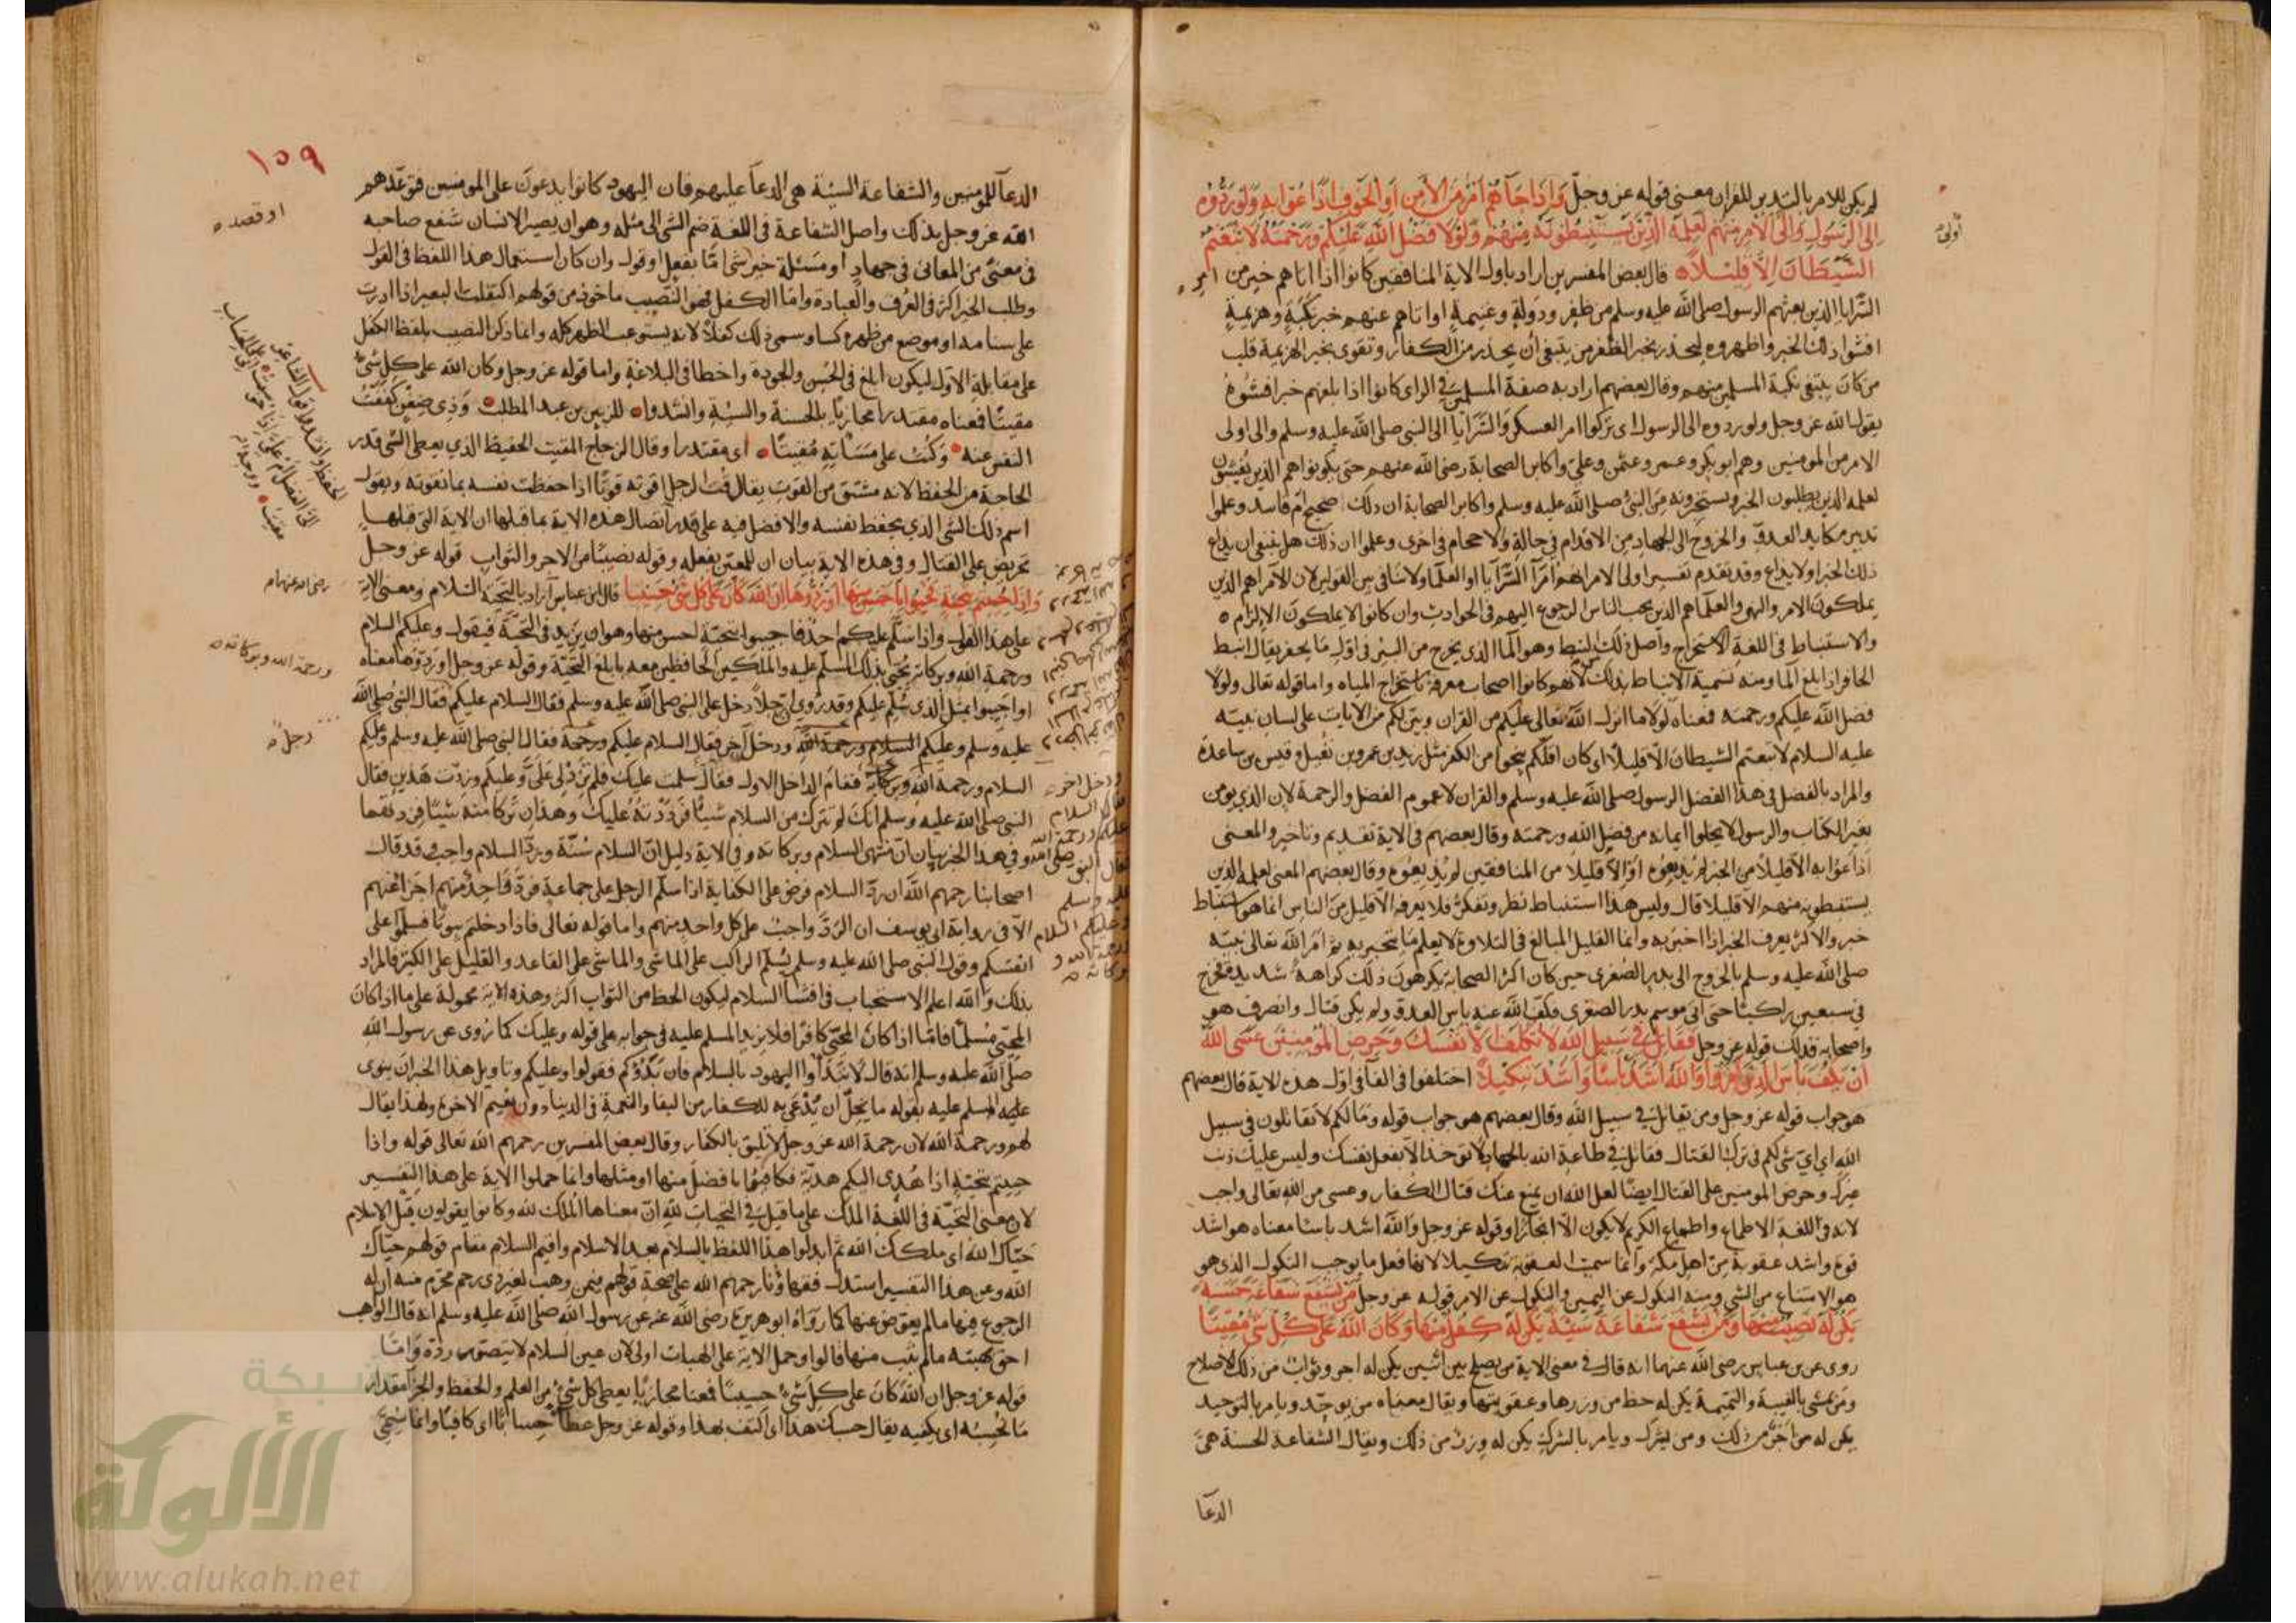 لم يكن للامر بالتدبر للقران معنى قوله عز وجل وَاِذَا جَآءَهُمْ اَمْرٌ مِنَ الْاَمْنِ اَوِ الْخَوْفِ اَذَاعُوا بِهِ وَلَوْ رَدُّوهُ
اِلَى الرَّسُولِ وَاِلَى الاَمْرِ مِنْهُمْ لَعَلِمَهُ الَّذِيْنَ يَسْتَنْبِطُونَهُ مِنْهُمْ وَلَوْلَا فَضْلُ اللهِ عَلَيْكُمْ وَرَحْمَتُهُ لَاتَّبَعْتُمُ
اولى
الشَّيْطَانَ اِلَّا قَلِيْلاً قال بعض المفسرين اراد باول الاية المنافقين كانوا اذا اتاهم خبر من امر
السَّرايا الذين بعثهم الرسول صلى الله عليه وسلم من ظفر ودولة وغنيمة او اتاهم عنهم خبر نكبة وهزيمة
افشوا ذلك الخبر واظهروه ليحذر بخبر الظفر من يبتغي أن يحذر من الكفار وتقوى بخبر الهزيمة قلب
من كان يبتغي نكبة المسلمين منهم وقال بعضهم اراد به صفة المسلمين في الراى كانوا اذا بلغهم خبر افشوه
يقول الله عز وجل ولو ردوه الى الرسول اى تركوا امر العسكر والسَّرَايَا الى النبي صلى الله عليه وسلم والى اولى
الامر من المومنين وهم ابو بكر وعمر وعثمن وعلي واكابر الصحابة رضى الله عنهم حتى يكونوا هم الذين يُفشون
لعلمه الذين يطلبون الخبر ويستخرجونه من النبي صلى الله عليه وسلم واكابر الصحابة ان ذلك صحيح ام فاسد وعلموا
تدبير مكايد العدو والخروج الى الجهاد من الاقدام في حالة والاحجام في اخرى وعلموا ان ذلك هل ينبغي ان يذاع
ذلك الخبر او لا يذاع وقد تقدم تفسير اولى الامر انهم امرآ السَّرايا او العلمآ ولا تنافي بين القولين لان الامرآ هم الذين
يملكون الامر والنهى والعلمآ هم الذين يجب الناس الرجوع اليهم في الحوادث وان كانوا لا يملكون الالزام
والاستنباط في اللغة الاستخراج واصل ذلك النبط وهو المآ الذى يخرج من البئر في اول ما يحفر يقال انبط
الحافر اذا بلغ المآ ومنه تسمية الانباط بذلك لانهم كانوا اصحاب معرفة باستخراج المياه واما قوله تعالى ولولا
فضل الله عليكم ورحمته فمعناه لولا ما انزل الله تعالى عليكم من القران وبين لكم من الايات على لسان نبيه
عليه السلام لاتبعتم الشيطان الا قليلا اى كان اقلكم ينجوا من الكفر مثل زيد بن عمرو بن نفيل وقيس بن ساعدة
والمراد بالفضل في هذا الفضل الرسول صلى الله عليه وسلم والقران لا عموم الفضل والرحمة لان الذى يومن
بغير الكتاب والرسول لا يخلوا ايمانه من فضل الله ورحمته وقال بعضهم في الاية تقديم وتاخير والمعنى
اذاعوا به الا قليلا من الخبر لم يذيعوه او الا قليلا من المنافقين لم يذيعوه وقال بعضهم المعنى لعلمه الذين
يستنبطونه منهم الا قليلا قال وليس هذا استنباط نظر وتفكر فلا يعرفه الا قليل من الناس انما هو استنباط
خبر والاكثر يعرف الخبر اذا اخبر به وانما القليل المبالغ في البلادة لا يعلم ما يتخبر به ثم امر الله تعالى نبيه
صلى الله عليه وسلم بالخروج الى بدر الصغرى حين كان اكثر الصحابة يكرهون ذلك كراهة شديدة فخرج
في سبعين راكبا حتى اتى موسم بدر الصغرى فكف الله عنه باس العدو ولم يكن قتال وانصرف هو
واصحابه فذلك قوله عز وجل فَقَاتِلْ فِي سَبِيْلِ اللهِ لَا تُكَلَّفُ اِلَّا نَفْسَكَ وَحَرِّضِ الْمُؤْمِنِيْنَ عَسَى اللهُ
اَنْ يَكُفَّ بَأْسَ الَّذِيْنَ كَفَرُوا وَاللهُ اَشَدُّ بَأْسًا وَاَشَدُّ تَنْكِيْلاً اختلفوا في الفآ في اول هذه الاية قال بعضهم
هو جواب قوله عز وجل ومن يقاتل في سبيل الله وقال بعضهم هو جواب قوله وما لكم لا تقاتلون في سبيل
الله اي اي شى لكم في ترك القتال فقاتل في طاعة الله بالجهاد لا توخذ الا بفعل نفسك وليس عليك ذنب
غيرك وحرض المومنين على القتال ايضا لعل الله ان يمنع عنك قتال الكفار وعسى من الله تعالى واجب
لانه في اللغة الاطماع واطماع الكريم لا يكون الا انجازا وقوله عز وجل والله اشد باسا معناه هو اشد
قوة واشد عقوبة من اهل مكة وانما سميت العقوبة تنكيلا لانها فعل ما يوجب النكول الذى هو
هو الامتناع من الشى ومنه النكول عن اليمين والنكول عن الامر قوله عز وجل مَنْ يَشْفَعْ شَفَاعَةً حَسَنَةً
يَكُنْ لَهُ نَصِيْبٌ مِنْهَا وَمَنْ يَشْفَعْ شَفَاعَةً سَيِّئَةً يَكُنْ لَهُ كِفْلٌ مِنْهَا وَكَانَ اللهُ عَلَى كُلِّ شَىْءٍ مُقِيْتًا
روى عن بن عباس رضى الله عنهما انه قال في معنى الاية من يصلح بين اثنين يكن له اجر وثواب من ذلك الاصلاح
ومن يمشى بالغيبة والنميمة يكن له حظ من وزرها وعقوبتها ويقال معناه من يوحد ويامر بالتوحيد
يكن له من اجر من ذلك ومن يشرك ويامر بالشرك يكن له وزر من ذلك ويقال الشفاعة الحسنة هى
الدعآ
١٥٩
الدعآ للمومنين والشفاعة السيئة هى الدعآ عليهم فان اليهود كانوا يدعون على المومنين فتوعدهم
الله عز وجل بذلك واصل الشفاعة في اللغة ضم الشى الى مثله وهو ان يصير الانسان شفع صاحبه
او قصده
في معنى من المعاني في جهاد او مسئلة خير شى اما بفعل او قول وان كان استعمال هذا اللفظ في القول
وطلب الخير اكثر في العُرف والعبادة واما الكفل فهو النصيب ماخوذ من قولهم اكتفلت البعير اذا ادرت
على سنامه او موضع من ظهره كسا وسمى ذلك كفلا لانه لم يستوعب الظهر كله وانما ذكر النصيب بلفظ الكفل
على مقابلة الاول ليكون ابلغ في الحسن والجودة واخطا في البلاغة واما قوله عز وجل وكان الله على كل شىء
مقيتا فمعناه مقتدرا مجازيا بالحسنة والسيئة وانشدوا للزبير بن عبد المطلب وَذِى ضِغْنٍ كَفَفْتُ
النفس عنه وَكُنْتُ على مَسَائَتِهِ مُقِيتًا اى مقتدرا وقال الزجاج المقيت الحفيظ الذي يعطى الشى قدر
الحاجة من الحفظ لانه مشتق من القوت يقال قت الرجل اقوته قوتا اذا حفظت نفسه بما تقوته ويقول
اسم ذلك الشى الذي يحفظ نفسه والافضل فيه على قدر اتصال هذه الاية بما قبلها ان الاية التي قبلها
تحريض على القتال وفي هذه الاية بيان ان للمعين بفعله وقوله نصيبا من الاجر والثواب قوله عز وجل
وَاِذَا حُيِّيْتُمْ بِتَحِيَّةٍ فَحَيُّوا بِاَحْسَنَ مِنْهَا اَوْ رُدُّوهَا اِنَّ اللهَ كَانَ عَلَى كُلِّ شَىْءٍ حَسِيْبًا قال ابن عباس اراد بالتحية السلام ومعنى الاية
رضى الله عنهما
على هذا القول واذا سلم عليكم احد فاجيبوا بتحية احسن منها وهو ان يزيد في التحية فيقول وعليكم السلام
ورحمة الله وبركاته يُحَيِّى بذلك المسلم عليه والملكين الحافظين معه بابلغ التحية وقوله عز وجل او ردوها معناه
ورحمة الله وبركاته
او اجيبوا بمثل الذى سُلِّم عليكم وقد رُوى ان رجلا دخل على النبي صلى الله عليه وسلم فقال السلام عليكم فقال النبي صلى الله
عليه وسلم وعليكم السلام ورحمة الله ودخل آخر فقال السلام عليكم ورحمة فقال النبي صلى الله عليه وسلم وعليكم
رجل
السلام ورحمة الله وبركاته فقام الداخل الاول فقال سلمت عليك فلم تزد لى على وعليكم وزدت هذين فقال
النبى صلى الله عليه وسلم انك لم تترك من السلام شيئا فرددته عليك وهذان تركا منه شيئا فزدتهما
وفي هذا الخبر بيان ان منتهى السلام وبركاته وفي الاية دليل ان السلام سُنّة وردّ السلام واجب قد قال
اصحابنا رحمهم الله ان ردّ السلام فرض على الكفاية اذا سلّم الرجل على جماعة فردّ واحد منهم اجزا عنهم
الا في رواية ابى يوسف ان الرّد واجب على كل واحد منهم واما قوله تعالى فاذا دخلتم بيوتا فسلموا على
انفسكم وقول النبى صلى الله عليه وسلم يُسلّم الراكب على الماشى والماشى على القاعد والقليل على الكثير فالمراد
بذلك والله اعلم الاستحباب في افشآ السلام ليكون الحظ من الثواب اكثر وهذه الاية محمولة على ما اذا كان
المحيّى مسلمًا فامّا اذا كان المحيّى كافرا فلا يزيد المسلم عليه في جوابه على قوله وعليك كما رُوى عن رسول الله
صلى الله عليه وسلم انه قال لا تبدأوا اليهود بالسلام فان بدؤكم فقولوا وعليكم وتاويل هذا الخبر ان ينوى
المسلم عليه بقوله ما يحلّ ان يُدْعى به للكفار من البقآ والنعمة في الدنيا دون نعيم الاخرة ولهذا يقال
لهم ورحمة الله لان رحمة الله عز وجل لا تليق بالكفار وقال بعض المفسرين رحمهم الله تعالى قوله واذا
حييتم بتحية اذا هُدى اليكم هدية فكافئوا بافضل منها او مثلها وانما حملوا الاية على هذا التفسير
لان معنى التحيّة في اللغة الملك على ما قيل في التحيات لله انّ معناها الملك لله وكانوا يقولون قبل الاسلام
حيّاك الله اى ملكك الله ثم ابدلوا هذا اللفظ بالسلام بعد الاسلام واقيم السلام مقام قولهم حيّاك
الله وعن هذا التفسير استدل فقهاؤنا رحمهم الله على صحة قولهم فيمن وهب لغير ذى رحم محرم منه ان له
الرجوع فيها ما لم يعوّض عنها كما رواه ابو هريرة رضى الله عنه عن رسول الله صلى الله عليه وسلم انه قال الواهب
احق بهبته ما لم يثب منها قالوا وحمل الاية على الهبات اولى لان عين السلام لا يتصور ردّه وامّا
قوله عز وجل ان الله كان على كل شىء حسيبا فمعناه مجازيا يعطى كل شىء من العلم والحفظ والجزآ مقدار
ما يُحْسِبُه اى يكفيه يقال حسبك هذا اى اكتف بهذا وقوله عز وجل عطآ حسابا اى كافيا وانما سُمّى
شبكة
الألولة
www.alukah.net